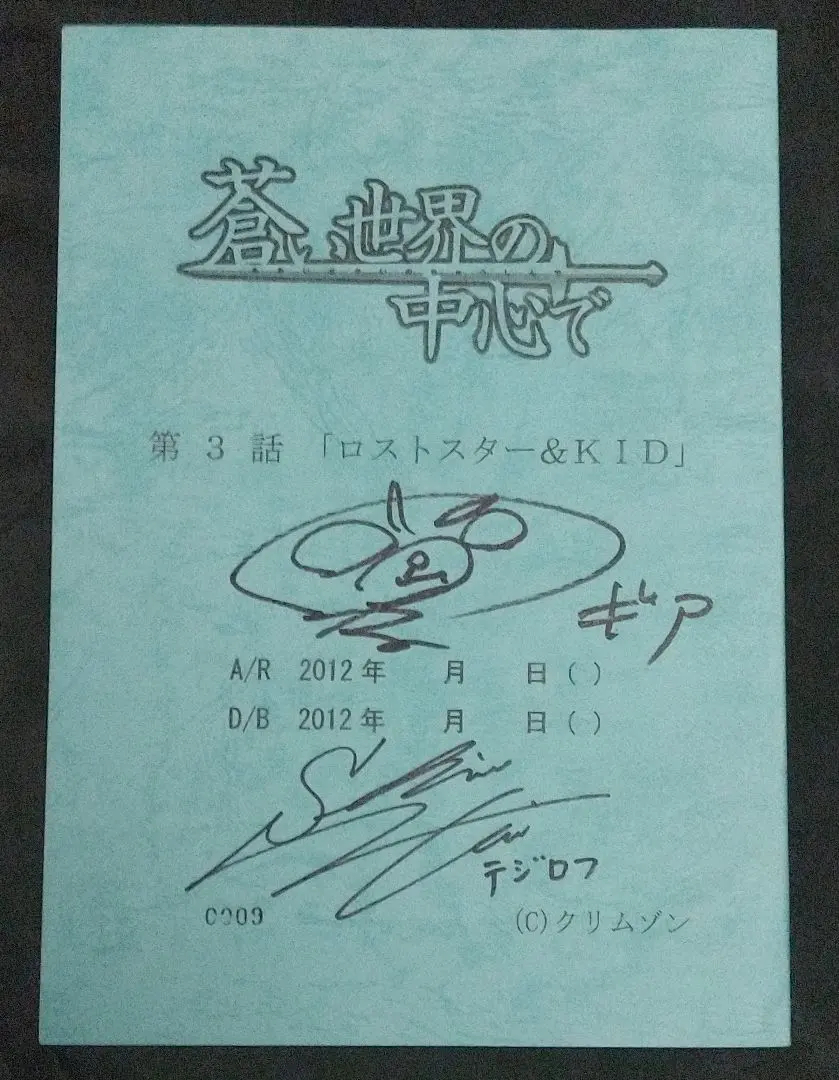 蒼い世界の
中心で
第3話 「ロストスター&KID」
ギア
A/R 2012年 月 日( )
D/B 2012年 月 日( )
テジロフ
0009
(C)クリムゾン